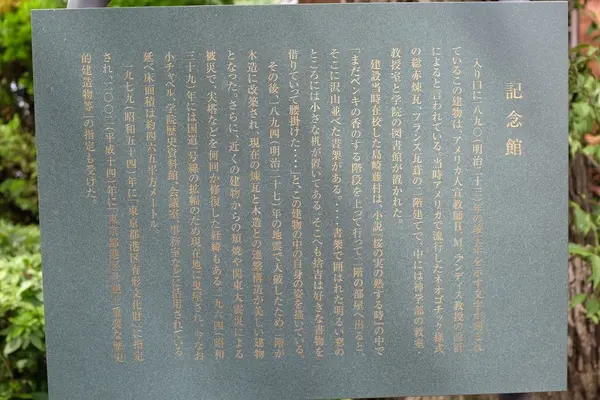 記念館
入り口に一八九〇(明治二十三)年の竣工年を示す文字が刻まれ
ているこの建物は、アメリカ人宣教師H・M・ランディス教授の設計
によるといわれている。当時アメリカで流行したネオゴチック様式
の総赤煉瓦、フランス瓦葺の二階建てで、中には神学部の教室・
教授室と学院の図書館が置かれた。
建設当時在校した島崎藤村は、小説『桜の実の熟する時』の中で
「まだペンキの香のする階段を上って行って二階の部屋へ出ると、
そこに沢山並べた書架がある。・・・書架で囲はれた明るい窓の
ところには小さな机が置いてある。そこへも捨吉は好きな書物を
借りていつて腰掛けた・・・」と、この建物の中の自身の姿を描いている。
その後一八九四(明治二十七)年の地震で大破したため二階が
木造に改築され、現在の煉瓦と木造との連繋構造が美しい建物
となった。さらに、近くの建物からの類焼や関東大震災による
被災で、尖塔などを何回か修復した経緯もある。一九六四(昭和
三十九)年には国道一号線の拡幅のため現在地に曳屋され、今なお
小チャペル、学院歴史資料館、会議室、事務室などに活用されている。
延べ床面積は約四六五平方メートル。
一九七九(昭和五十四)年に「東京都港区有形文化財」に指定
され、二〇〇二(平成十四)年に「東京都港区
的建造物等」の指定も受けた。